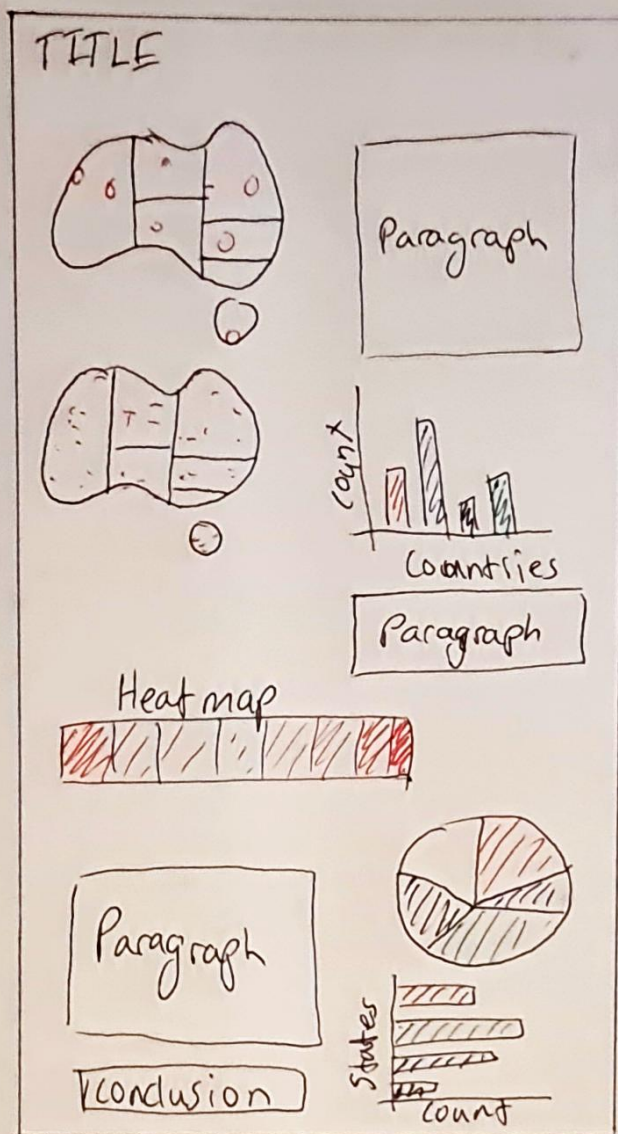 TITLE
Paragraph
Count
Countries
Paragraph
Heatmap
Paragraph
Conclusion
States
Count